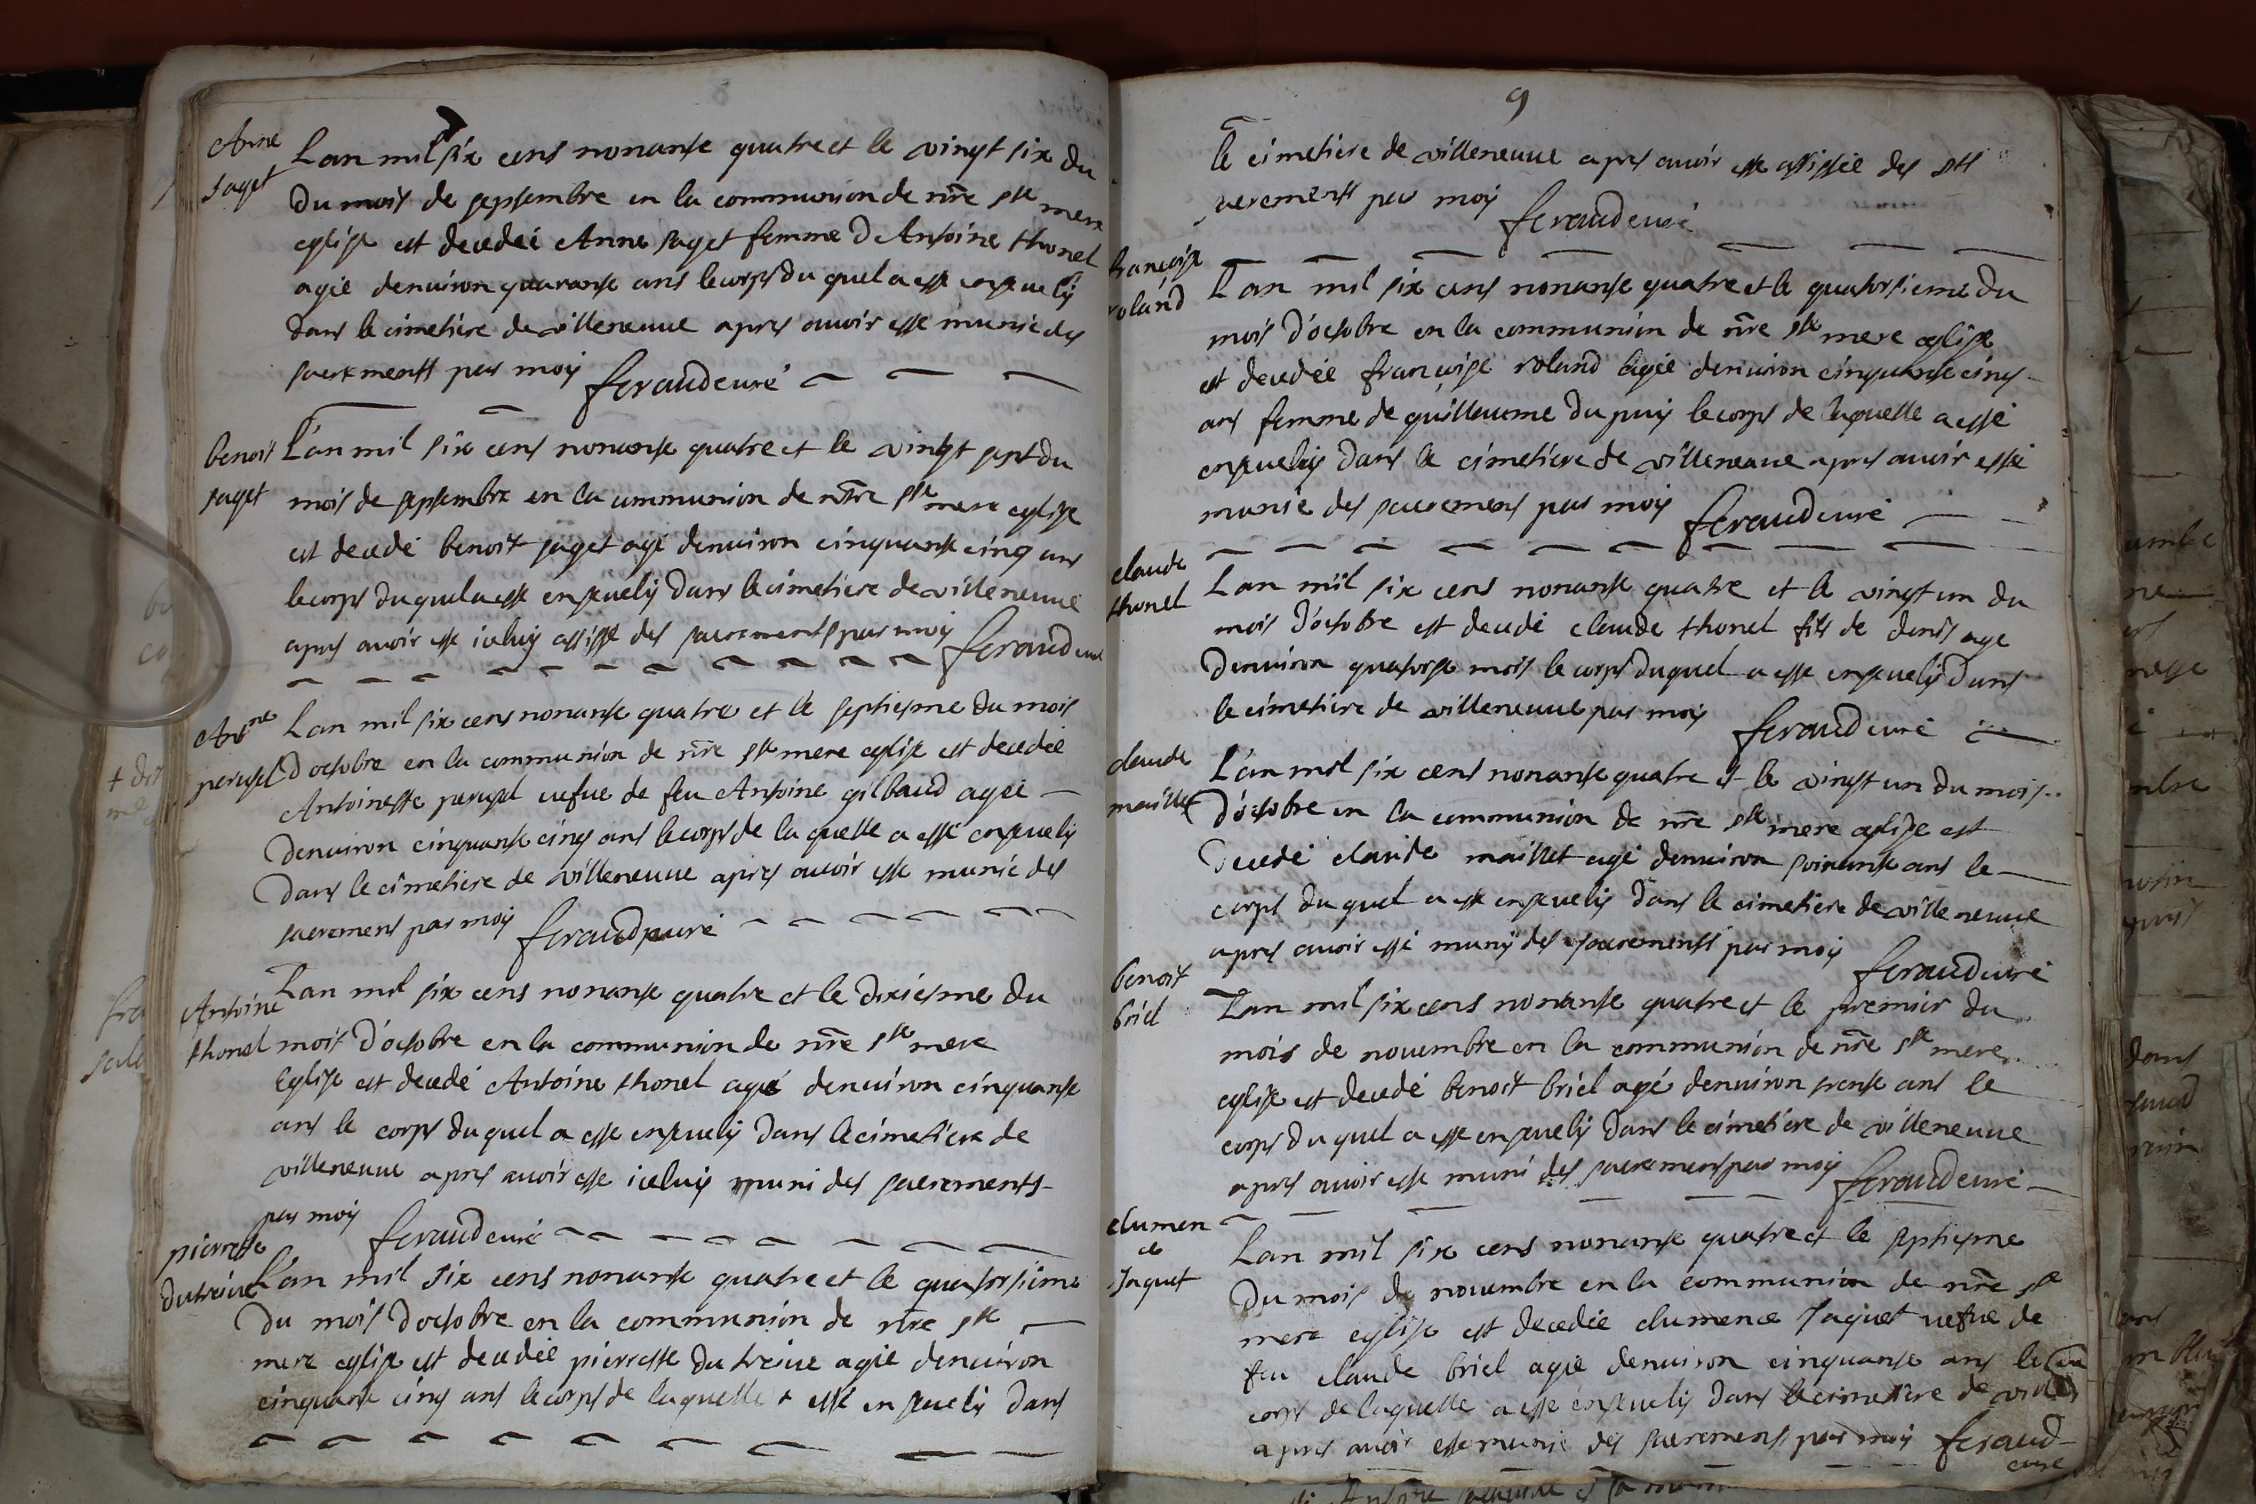 Anne
saget
Lan mil six cens nonante quatre et le vingt six du
du mois de septembre en la communion de nre ste mere
eglise est decedeé Anne saget femme D Antoine thonel
ageé denuiron quarante ans le corps du quel a esté enseuely
dans le cimetiere de villeneuue apres auoir esté munie des
sacrements par moy feraud curé
benoit
saget
L'an mil six cens nonante quatre et le vingt sept du
mois de septembre en la communion de nostre ste mere eglise
est decedé benoit saget agé denuiron cinquante cinq ans
le corps du quel a esté enseuely dans le cimetiere de villeneuue
apres auoir esté iceluy assisté des sacrements par moy feraud curé
Antne
perusel
Lan mil six cens nonante quatre et le septiesme du mois
d octobre en la communion de nre ste mere eglise est decedeé
Antoinette perusel uefue de feu Antoine gilbaud ageé
denuiron cinquante cinq ans le corps de la quelle a esté enseuely
dans le cimetiere de villeneuue apres auoir esté munie des
sacremens par moy feraud curé
Antoine
thonel
Lan mil six cens nonante quatre et le dixiesme du
mois d'octobre en la communion de nre ste mere
Eglise est decedé Antoine thonel agé denuiron cinquante
ans le corps du quel a esté enseuely dans le cimetiere de
villeneuue apres auoir esté iceluy muni des sacrements
par moy feraud curé
pierrette
dutreiue
L'an mil six cens nonante quatre et le quatorsieme
du mois d octobre en la communion de nre ste
mere eglise est decedeé pierrette du treiue ageé denuiron
cinquante cinq ans le corps de la quelle a esté enseuely dans
9
le cimetiere de villeneuue apres auoir esté assisteé des sts
sacrements par moy feraud curé
francoise
roland
Lan mil six cens nonante quatre et le quatorsieme du
mois d'octobre en la communion de nre ste mere eglise
est decedeé françoise roland ageé denuiron cinquante cinq
ans femme de guilleaume du puy le corps de laquelle a esté
enseuely dans le cimetiere de villeneuue apres auoir esté
munie des sacremens par moy feraud curé
claude
thonel
Lan mil six cens nonante quatre et le vingt un du
mois d'octobre est decedé claude thonel fils de denis age
denuiron quatorse mois le corps duquel a esté enseuely dans
le cimetiere de villeneuue par moy feraud curé
claude
maillet
L'an mil six cens nonante quatre et le vingt un du mois
d'octobre en la communion de nre ste mere eglise est
decedé claude maillet agé denuiron soixante ans le
corps du quel a esté enseuely dans le cimetiere de villeneuue
apres auoir esté muny des sacrements par moy
feraud curé
benoit
briel
Lan mil six cens nonante quatre et le premier du
mois de nouembre en la communion de nre ste mere
eglise est decedé benoit briel agé denuiron trente ans le
corps du quel a esté enseuely dans le cimetiere de villeneuue
apres auoir esté muni des sacremens par moy feraud curé
clumen
ce
Jaquet
Lan mil six cens nonante quatre et le septiesme
du mois de nouembre en la communion de nre ste
mere eglise est decedeé clumence Jaquet uefue de
feu claude briel ageé denuiron cinquante ans le
corps de laquelle a esté enseuely dans le cimetiere de
apres auoir esté munie des sacremens par moy feraud
curé